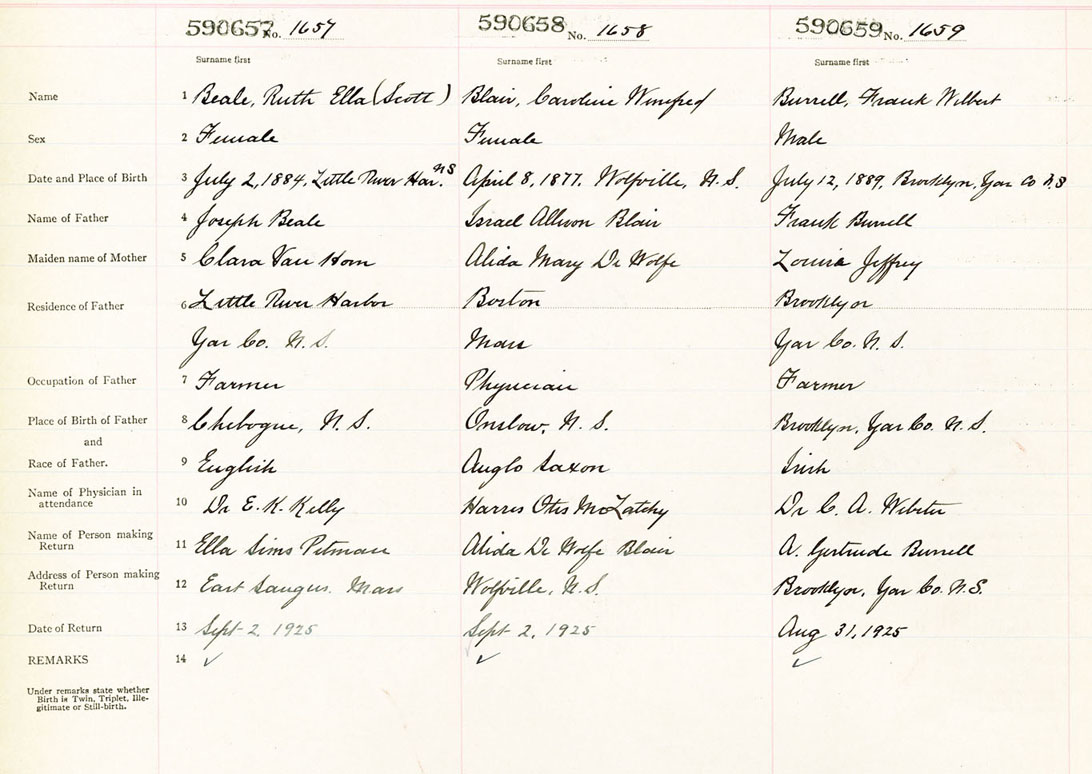 590657 No. 1657 590658 No. 1658 590659 No. 1659
Surname first Surname first Surname first
Name 1 Beale, Ruth Ella (Scott) Blair, Caroline Winifred Burrell, Frank Wilbert
Sex 2 Female Female Male
Date and Place of Birth 3 July 2, 1884, Little River Har. NS April 8, 1877. Wolfville, N.S. July 12, 1889, Brooklyn, Yar Co N.S
Name of Father 4 Joseph Beale Israel Allison Blair Frank Burrell
Maiden name of Mother 5 Clara Van Horn Alida Mary De Wolfe Louisa Jeffrey
Residence of Father 6 Little River Harbor Boston Brooklyn
Yar Co. N.S. Mass Yar Co. N.S.
Occupation of Father 7 Farmer Physician Farmer
Place of Birth of Father 8 Chebogue, N.S. Onslow, N.S. Brooklyn, Yar Co. N.S.
and
Race of Father. 9 English Anglo Saxon Irish
Name of Physician in attendance 10 Dr E. K. Kelly Harris Otis McLatchy Dr C. A. Webster
Name of Person making Return 11 Ella Sims Pitman Alida De Wolfe Blair A. Gertrude Burrell
Address of Person making Return 12 East Saugus. Mass Wolfville, N.S. Brooklyn, Yar Co. N.S.
Date of Return 13 Sept 2, 1925 Sept 2, 1925 Aug 31, 1925
REMARKS 14 ✓ ✓ ✓
Under remarks state whether
Birth is Twin, Triplet, Ille-
gitimate or Still-birth.